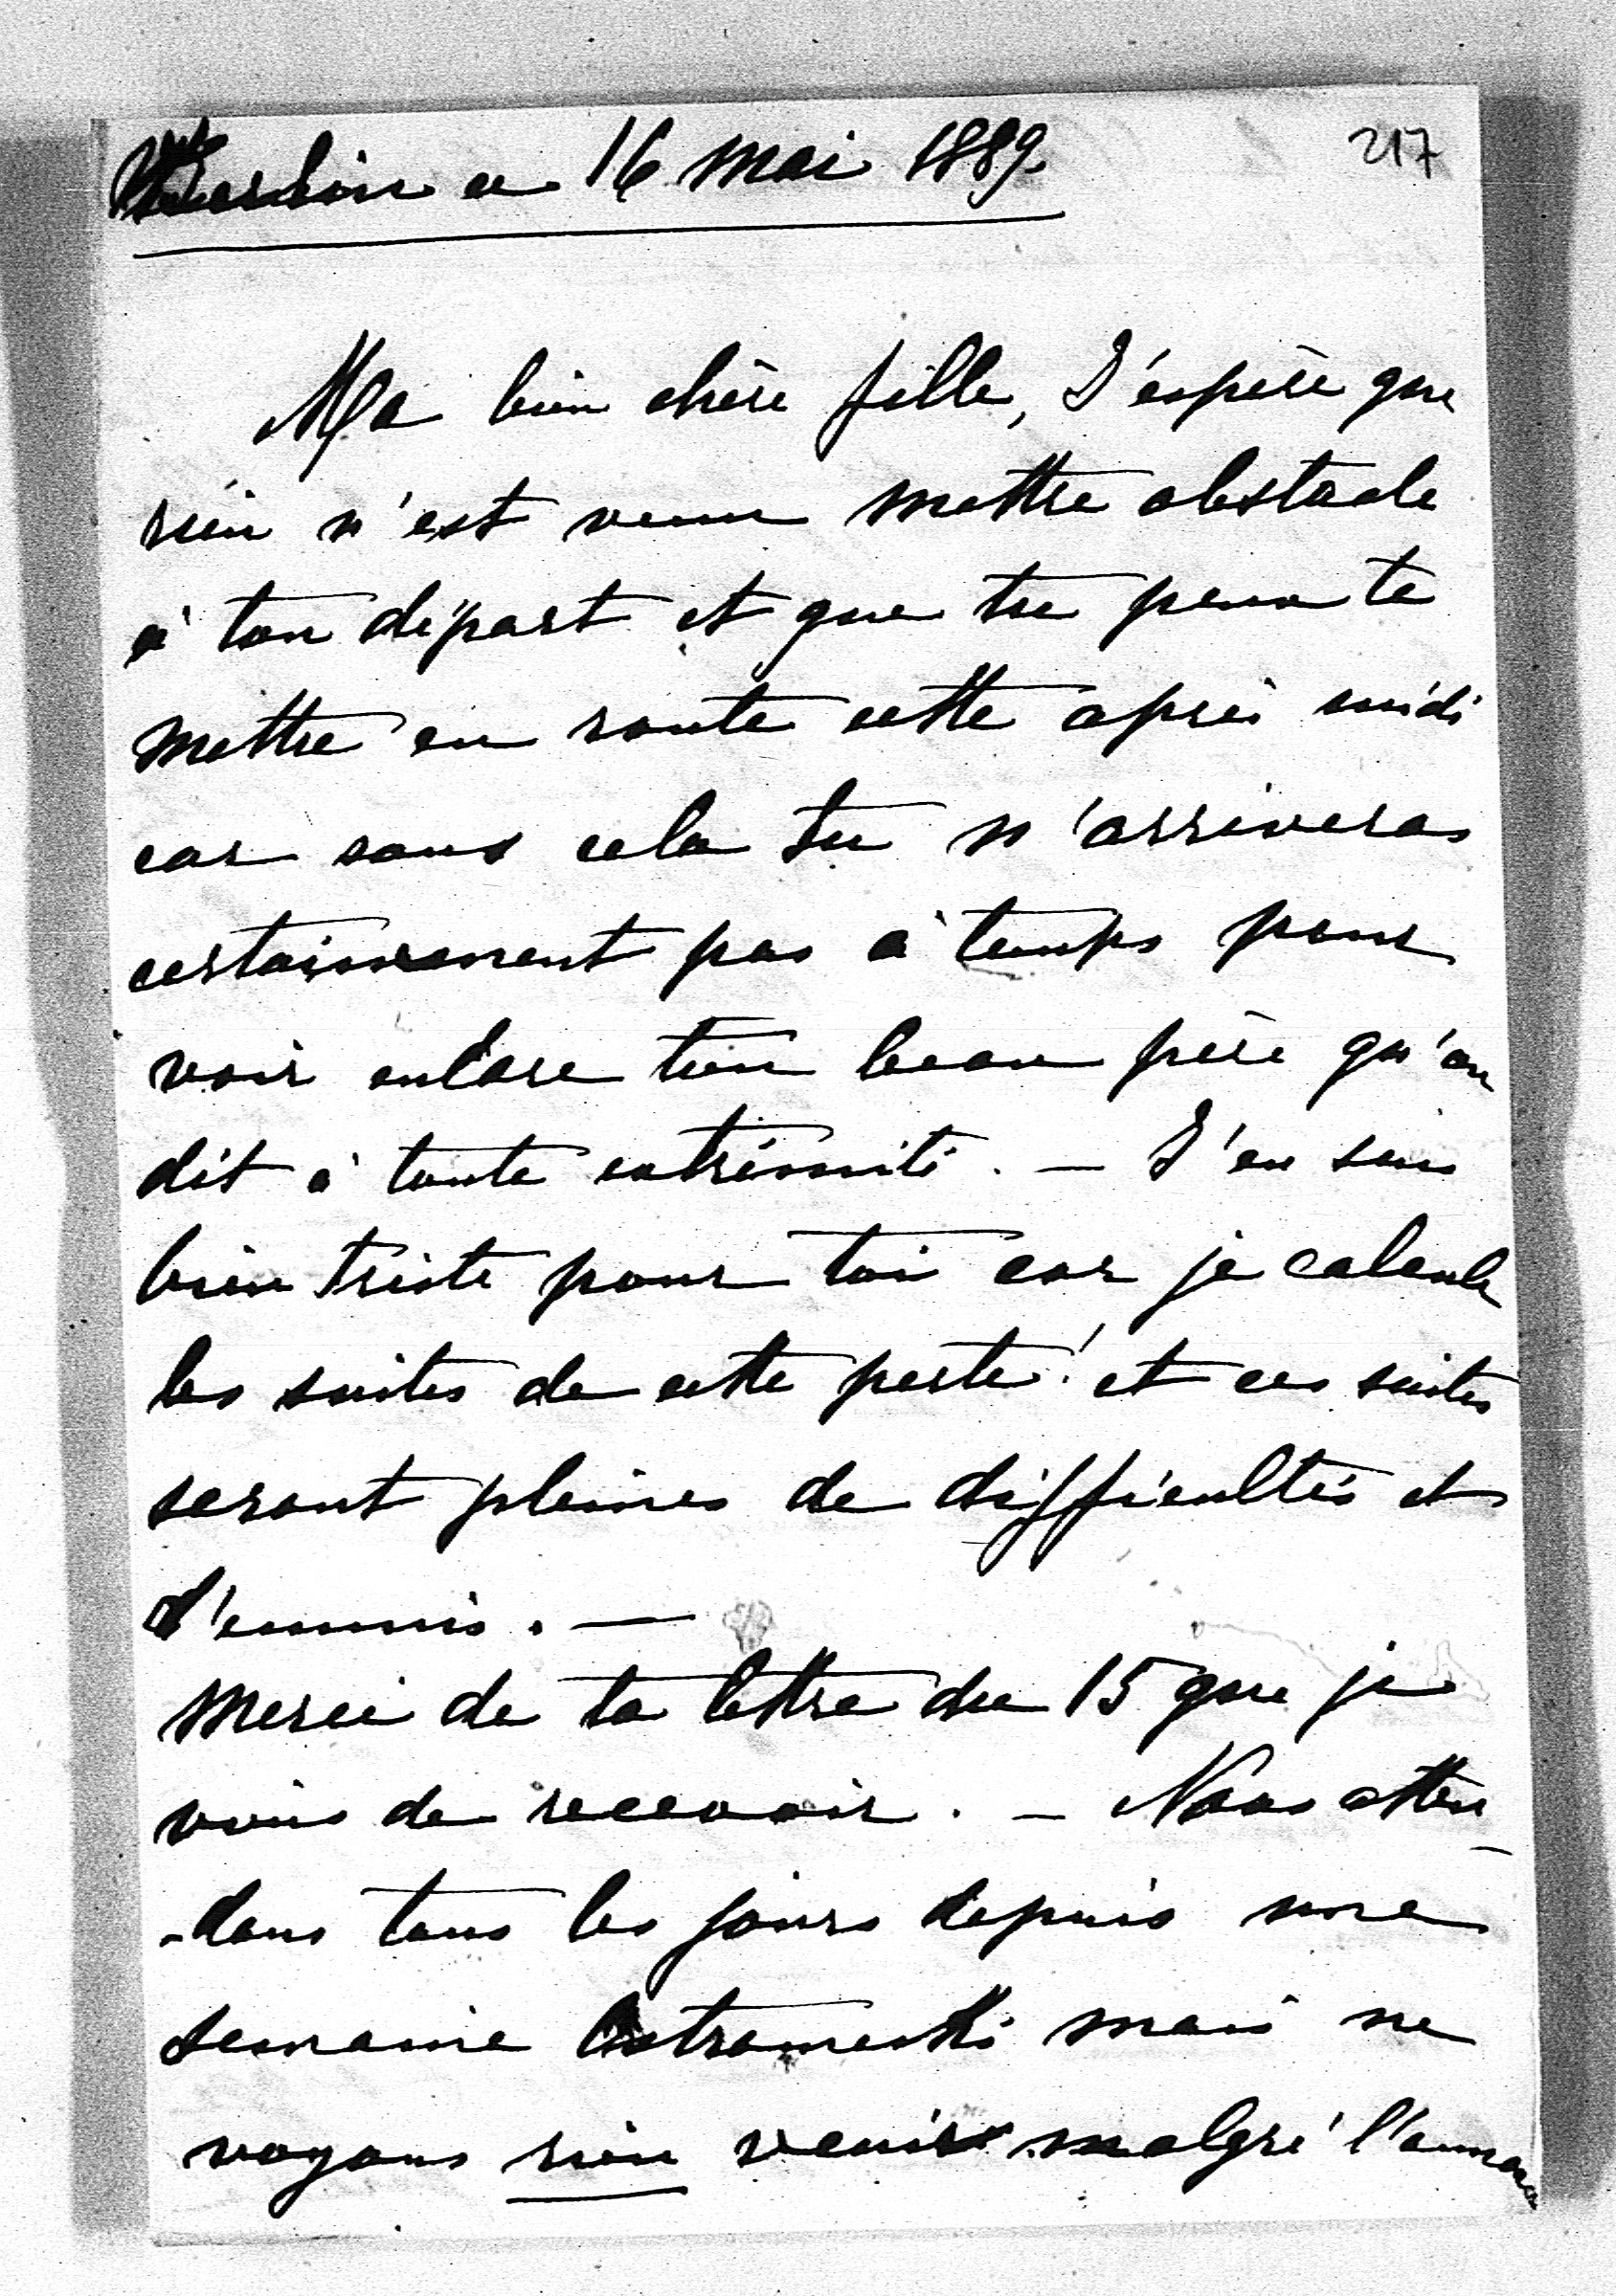 ce 16 mai 1889.
217
Ma bien chère fille, J'espère que
rien n'est venu mettre obstacle
à ton départ et que tu peux te
mettre en route cette après midi
car sans cela tu n'arriveras
certainement pas à temps pour
voir encore ton beau père qu'on
dit à toute extrémité. — J'en suis
bien triste pour toi car je calcule
les suites de cette perte! et ces suites
seront pleines de difficultés et
d'ennuis. —
Merci de ta lettre du 15 que je
viens de recevoir. — Nous atten-
-dons tous les jours depuis une
semaine mais ne
voyons rien venir malgré l'annonce